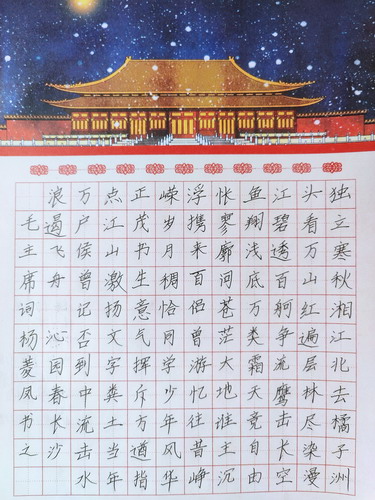 独立寒秋湘江北去橘子洲
头看万山红遍层林尽染漫
江碧透百舸争流鹰击长空
鱼翔浅底万类霜天竞自由
怅寥廓问苍茫大地谁主沉
浮携来百侣曾游忆往昔峥
嵘岁月稠恰同学少年风华
正茂书生意气挥斥方遒指
点江山激扬文字粪土当年
万户侯曾记否到中流击水
浪遏飞舟 沁园春长沙
毛主席词杨菱凤书之